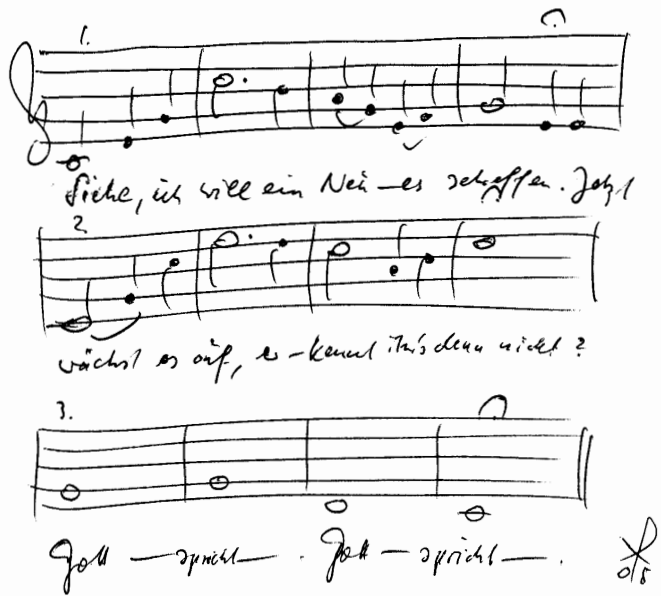 1.
Siehe, ich will ein Neu–es schaffen. Jetzt
2.
wächst es auf, er–kennt ihr's denn nicht?
3.
Gott — spricht — . Gott — spricht — .
05